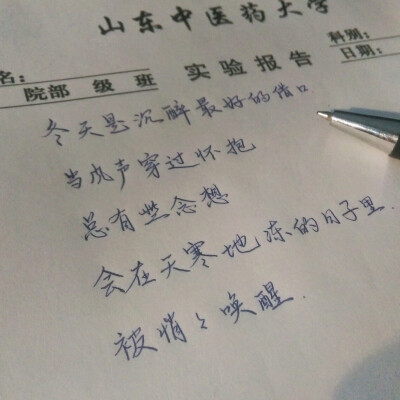 山东中医药大学
实验报告
科别：
名：
院部 级 班
日期：
冬天是沉醉最好的借口.
当风声穿过怀抱
总有些念想
会在天寒地冻的日子里.
被悄々唤醒.